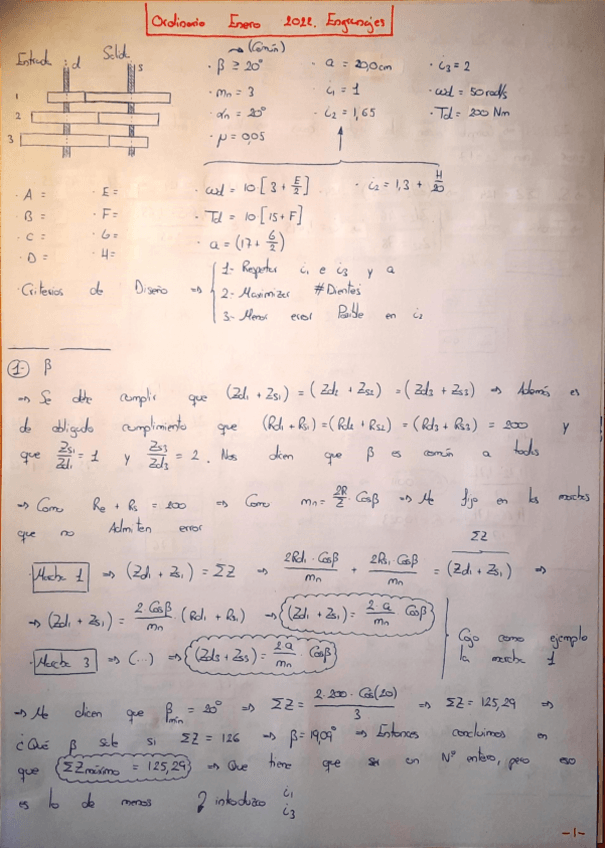 Ordinario Enero 2022. Engranajes
Entrada d Salida s
1
2
3
→ (Común)
· β ≥ 20° · a = 20,0cm · i3 = 2
· mn = 3 · i1 = 1 · ωd = 50 rad/s
· αn = 20° · i2 = 1,65 · Td = 200 Nm
· μ = 0,05
· A = · E =
· B = · F =
· C = · G =
· D = · H =
· ωd = 10 [3 + E/2] · i2 = 1,3 + H/20
· Td = 10 [15 + F]
· a = (17 + G/2)
· Criterios de Diseño ⇒
1- Respetar i1 e i3 y a
2- Maximizer #Dientes
3- Menor error Posible en i2
1- β
⇒ Se debe cumplir que (Zd1 + Zs1) = (Zd2 + Zs2) = (Zd3 + Zs3) ⇒ Además es
de obligado cumplimiento que (Rd1 + Rs1) = (Rd2 + Rs2) = (Rd3 + Rs3) = 200 y
que Zs1/Zd1 = 1 y Zs3/Zd3 = 2. Nos dicen que β es común a todas
⇒ Como Re + Rs = 200 ⇒ Como mn = 2R/Z · Cosβ ⇒ Me fijo en las marchas
que no Admiten error
· Marcha 1 ⇒ (Zd1 + Zs1) = ΣZ ⇒ 2Rd1 · Cosβ/mn + 2Rs1 · Cosβ/mn = (Zd1 + Zs1) ⇒
ΣZ
⇒ (Zd1 + Zs1) = 2 Cosβ/mn · (Rd1 + Rs1) ⇒ (Zd1 + Zs1) = 2·a/mn Cosβ
· Marcha 3 ⇒ (...) ⇒ (Zd3 + Zs3) = 2a/mn · Cosβ
Cojo como ejemplo
la marcha 1
⇒ Me dicen que βmín = 20° ⇒ ΣZ = 2·200·Cos(20)/3 ⇒ ΣZ = 125,29 ⇒
¿Qué β sale si ΣZ = 126 ⇒ β = 19,09° ⇒ Entonces concluimos en
que ΣZmáximo = 125,29 ⇒ Que tiene que ser un Nº entero, pero eso
es lo de menos introduzco i1
i3
-1-